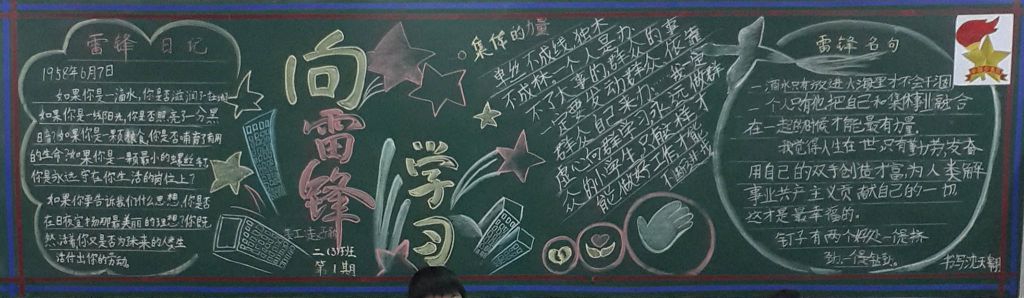 雷锋日记
1958年6月7日
如果你是一滴水,你是否滋润了一寸土地?
如果你是一线阳光,你是否照亮了一分黑
暗?如果你是一颗粮食,你是否哺育了有用
的生命?如果你是一颗最小的螺丝钉,
你是否永远守在你生活的岗位上?
如果你要告诉我们什么思想,你是否
在日夜宣扬那最美丽的理想?你既
然活着,你又是否为未来的人类生
活付出你的劳动。
向
雷锋
学习
二(3)班
第1期
集体的力量
单丝不成线,独木
不成林,一个人是办
不了大事的,群众的事
一定要发动群众、依靠
群众自己来办。我
虚心向群众学习,永远做群
众的小学生,只有这样才
能做好工作,才能
雷锋名句
一滴水只有放进大海里才不会干涸
一个人只有他把自己和集体事业融合
在一起的时候才能最有力量。
我觉得人生在世,只有勤劳,发奋
用自己的双手创造才富,为人类解
事业共产主义贡献自己的一切,
这才是最幸福的。
钉子有两个好处一是挤
书写沈天翱